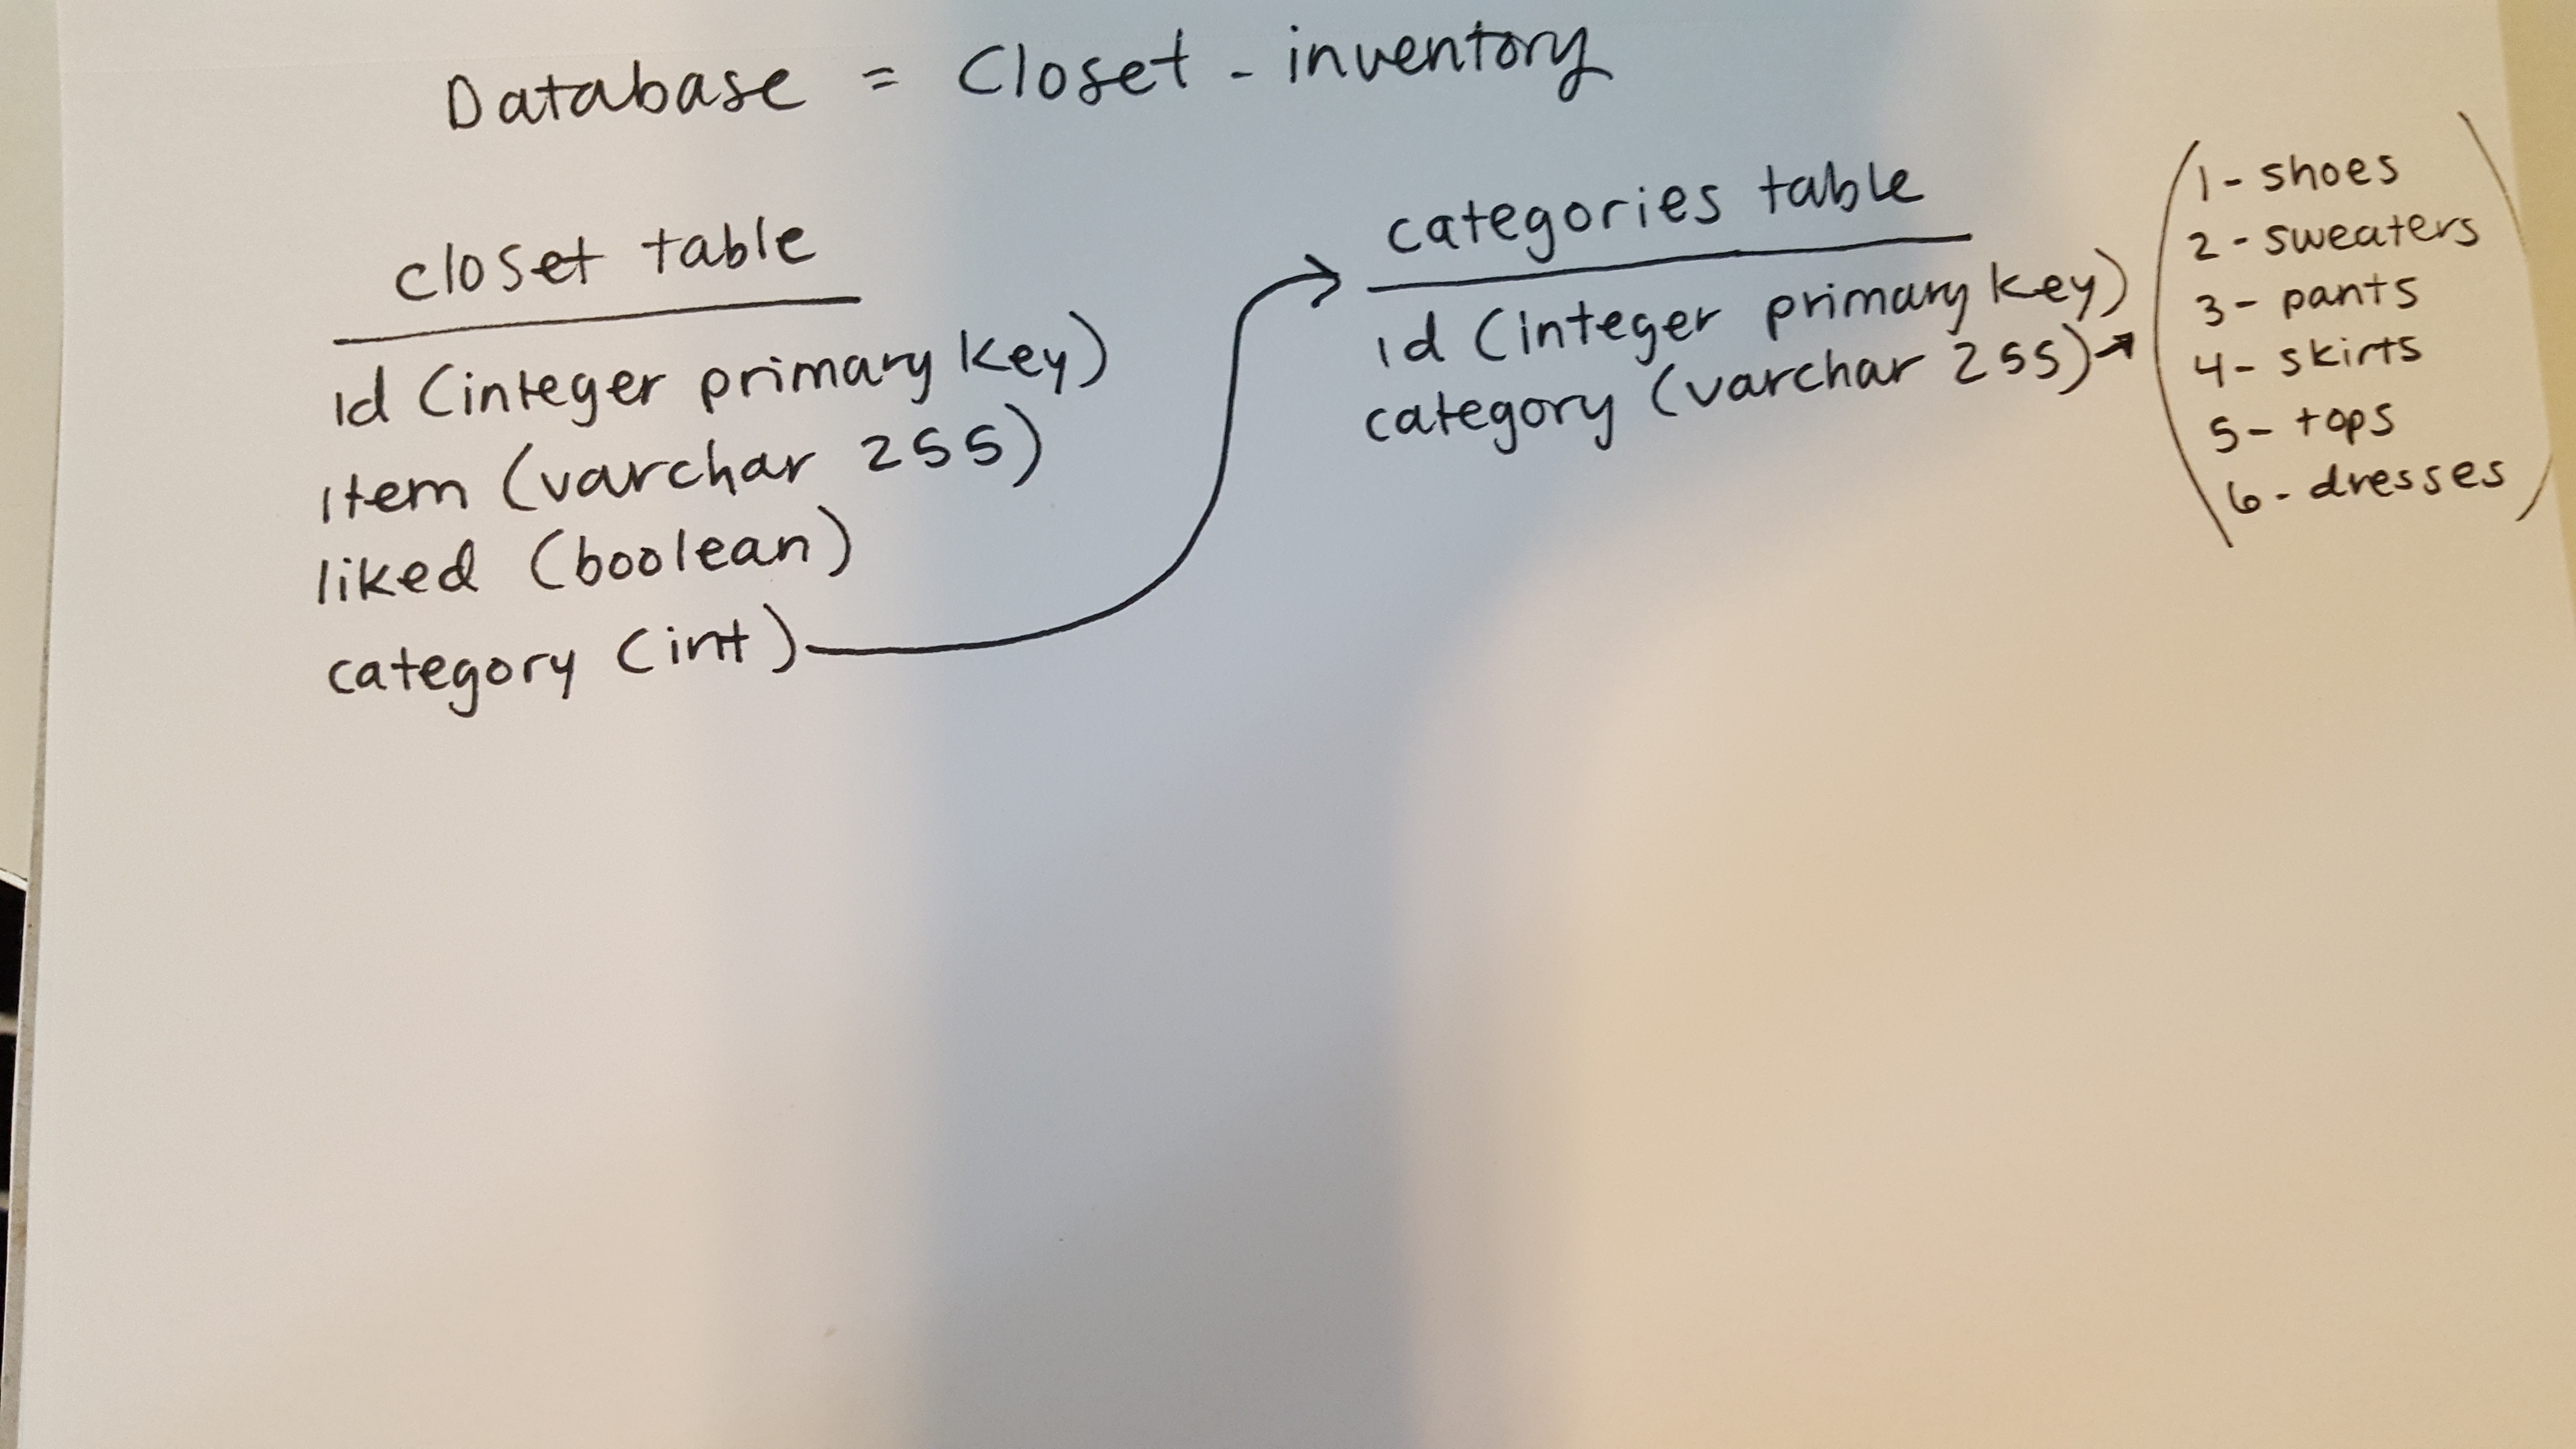 Database = Closet - inventory
closet table
id (integer primary key)
item (varchar 255)
liked (boolean)
category (int)
categories table
id (integer primary key)
category (varchar 255)
1 - shoes
2 - sweaters
3 - pants
4 - skirts
5 - tops
6 - dresses